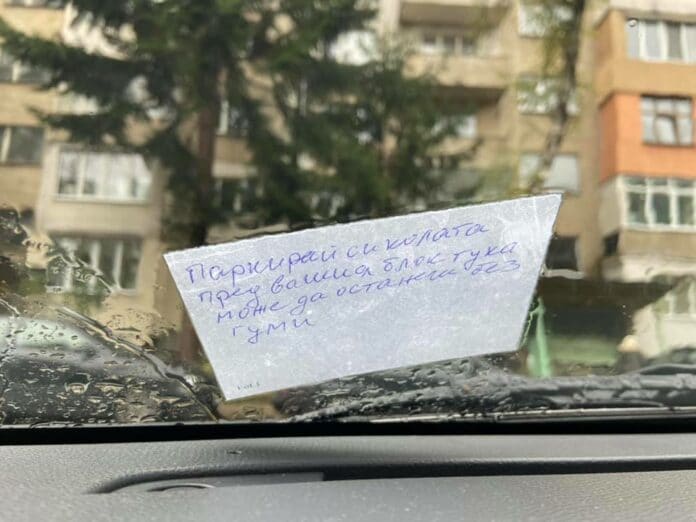 Паркирай си колата
пред вашия блок тука
може да останеш без
гуми
1 от 1